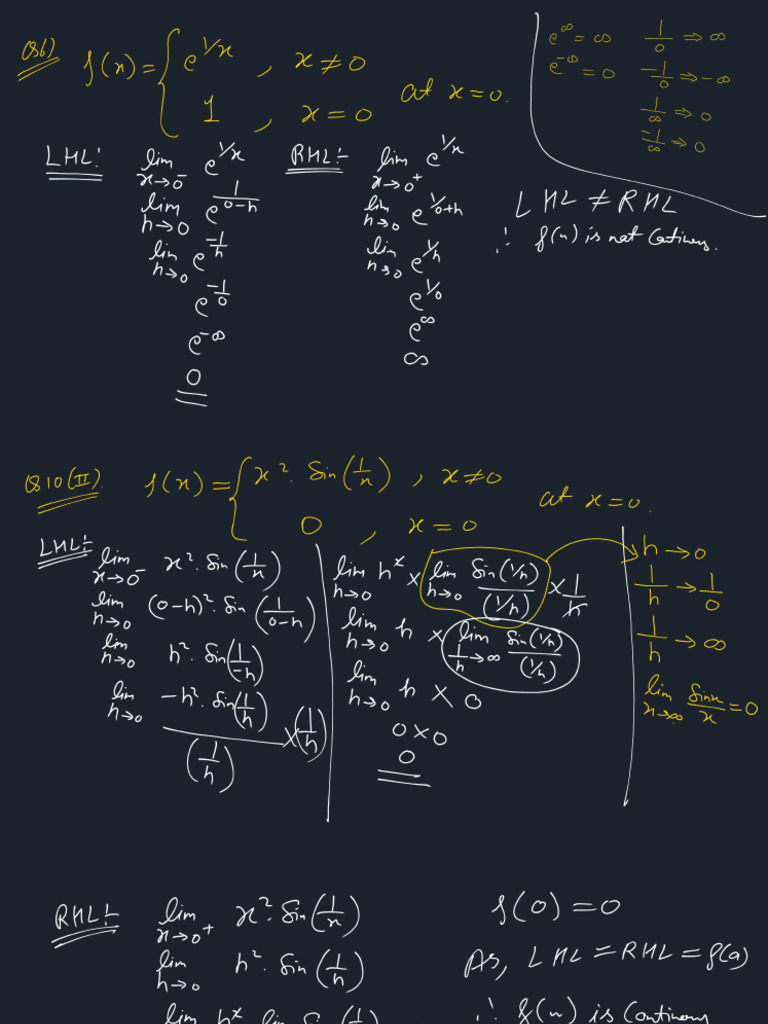 Q6)
f(x) = { e^{1/x} , x ≠ 0
1 , x = 0
at x=0.
e^∞ = ∞
e^{-∞} = 0
1/0 ⇒ ∞
-1/0 ⇒ -∞
1/∞ ⇒ 0
-1/∞ ⇒ 0
LHL:
lim x→0⁻ e^{1/x}
lim h→0 e^{1/(0-h)}
lim h→0 e^{-1/h}
e^{-1/0}
e^{-∞}
0
RHL:-
lim x→0⁺ e^{1/x}
lim h→0 e^{1/0+h}
lim h→0 e^{1/h}
e^{1/0}
e^∞
∞
LHL ≠ RHL
∴ f(x) is not Continuous.
Q10(II).
f(x) = { x². Sin(1/x) , x≠0
0 , x = 0
at x=0.
LHL:
lim x→0⁻ x². Sin(1/x)
lim h→0 (0-h)². Sin(1/(0-h))
lim h→0 h². Sin(1/-h)
lim h→0 -h². Sin(1/h) / (1/h) × (1/h)
lim h→0 h² × lim h→0 Sin(1/h)/(1/h) × 1/h
lim h→0 h × lim 1/h→∞ Sin(1/h)/(1/h)
lim h→0 h × 0
0 × 0
0
h → 0
1/h → 1/0
1/h → ∞
lim x→∞ Sinx/x = 0
RHL:-
lim x→0⁺ x². Sin(1/x)
lim h→0 h². Sin(1/h)
f(0) = 0
As, LHL = RHL = f(a)
∴ f(x) is Continuous